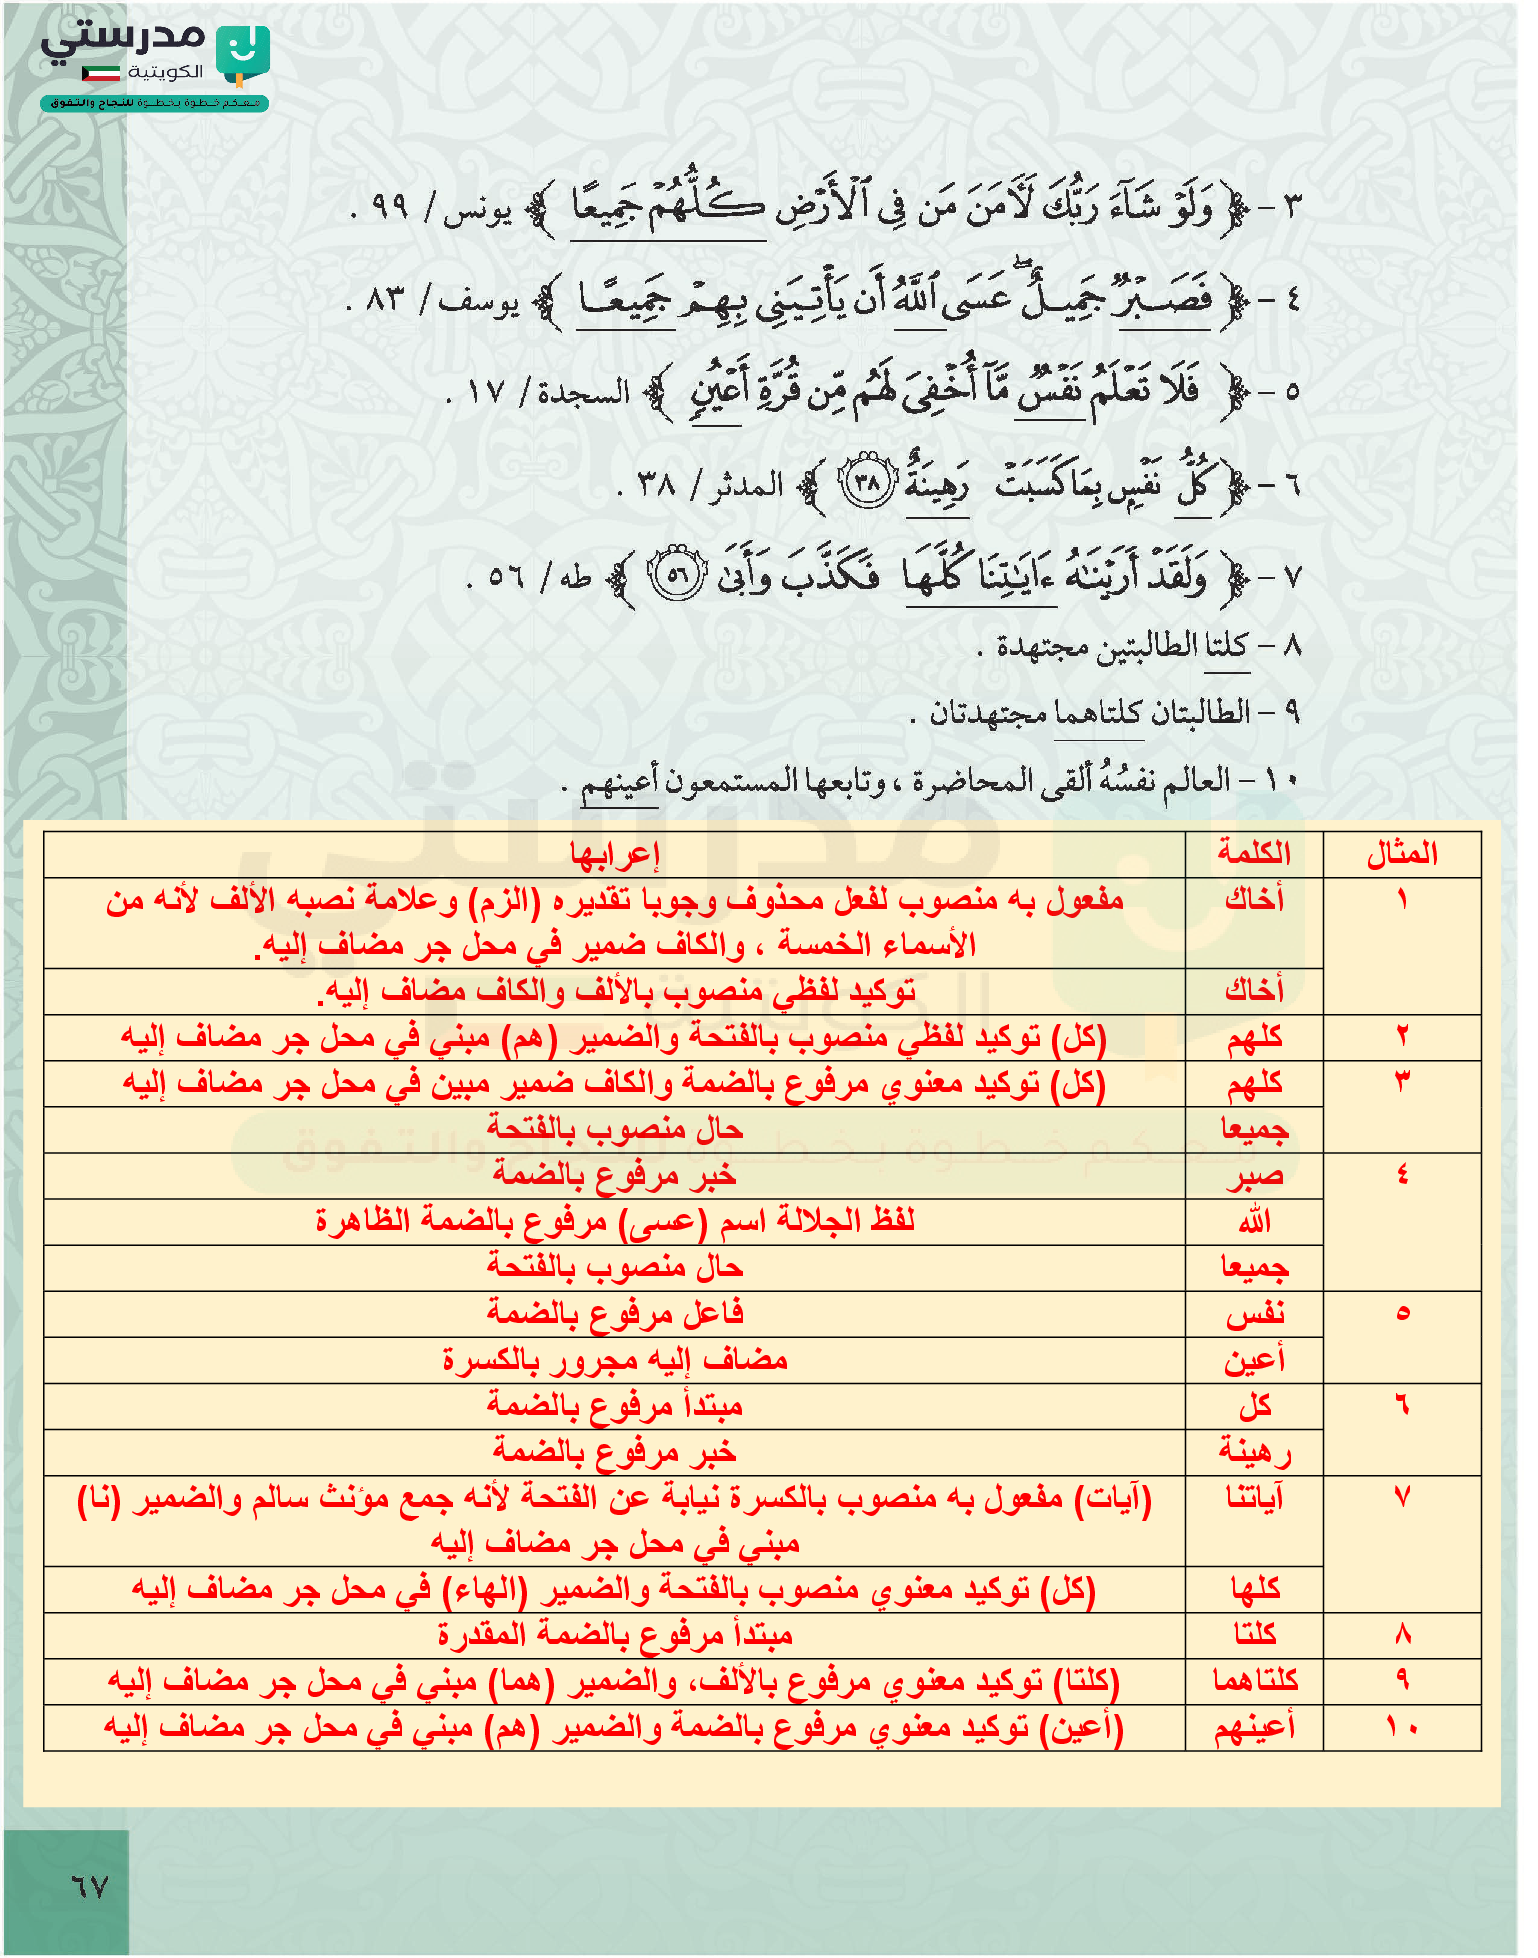 مدرستي
الكويتية
معكم خطوة بخطوة للنجاح والتفوق
٣ - ﴿ وَلَوْ شَآءَ رَبُّكَ لَأٓمَنَ مَن فِى ٱلْأَرْضِ كُلُّهُمْ جَمِيعًا ﴾ يونس / ٩٩ .
٤ - ﴿ فَصَبْرٌ جَمِيلٌ ۖ عَسَى ٱللَّهُ أَن يَأْتِيَنِى بِهِمْ جَمِيعًا ﴾ يوسف / ٨٣ .
٥ - ﴿ فَلَا تَعْلَمُ نَفْسٌ مَّآ أُخْفِىَ لَهُم مِّن قُرَّةِ أَعْيُنٍ ﴾ السجدة / ١٧ .
٦ - ﴿ كُلُّ نَفْسٍ بِمَا كَسَبَتْ رَهِينَةٌ ٣٨ ﴾ المدثر / ٣٨ .
٧ - ﴿ وَلَقَدْ أَرَيْنَٰهُ ءَايَٰتِنَا كُلَّهَا فَكَذَّبَ وَأَبَىٰ ٥٦ ﴾ طه / ٥٦ .
٨ - كلتا الطالبتين مجتهدة .
٩ - الطالبتان كلتاهما مجتهدتان .
١٠ - العالم نفسُهُ ألقى المحاضرة ، وتابعها المستمعون أعينهم .
المثال الكلمة إعرابها
١ أخاك مفعول به منصوب لفعل محذوف وجوبا تقديره (الزم) وعلامة نصبه الألف لأنه من
الأسماء الخمسة ، والكاف ضمير في محل جر مضاف إليه.
أخاك توكيد لفظي منصوب بالألف والكاف مضاف إليه.
٢ كلهم (كل) توكيد لفظي منصوب بالفتحة والضمير (هم) مبني في محل جر مضاف إليه
٣ كلهم (كل) توكيد معنوي مرفوع بالضمة والكاف ضمير مبين في محل جر مضاف إليه
جميعا حال منصوب بالفتحة
٤ صبر خبر مرفوع بالضمة
الله لفظ الجلالة اسم (عسى) مرفوع بالضمة الظاهرة
جميعا حال منصوب بالفتحة
٥ نفس فاعل مرفوع بالضمة
أعين مضاف إليه مجرور بالكسرة
٦ كل مبتدأ مرفوع بالضمة
رهينة خبر مرفوع بالضمة
٧ آياتنا (آيات) مفعول به منصوب بالكسرة نيابة عن الفتحة لأنه جمع مؤنث سالم والضمير (نا)
مبني في محل جر مضاف إليه
كلها (كل) توكيد معنوي منصوب بالفتحة والضمير (الهاء) في محل جر مضاف إليه
٨ كلتا مبتدأ مرفوع بالضمة المقدرة
٩ كلتاهما (كلتا) توكيد معنوي مرفوع بالألف، والضمير (هما) مبني في محل جر مضاف إليه
١٠ أعينهم (أعين) توكيد معنوي مرفوع بالضمة والضمير (هم) مبني في محل جر مضاف إليه
٦٧